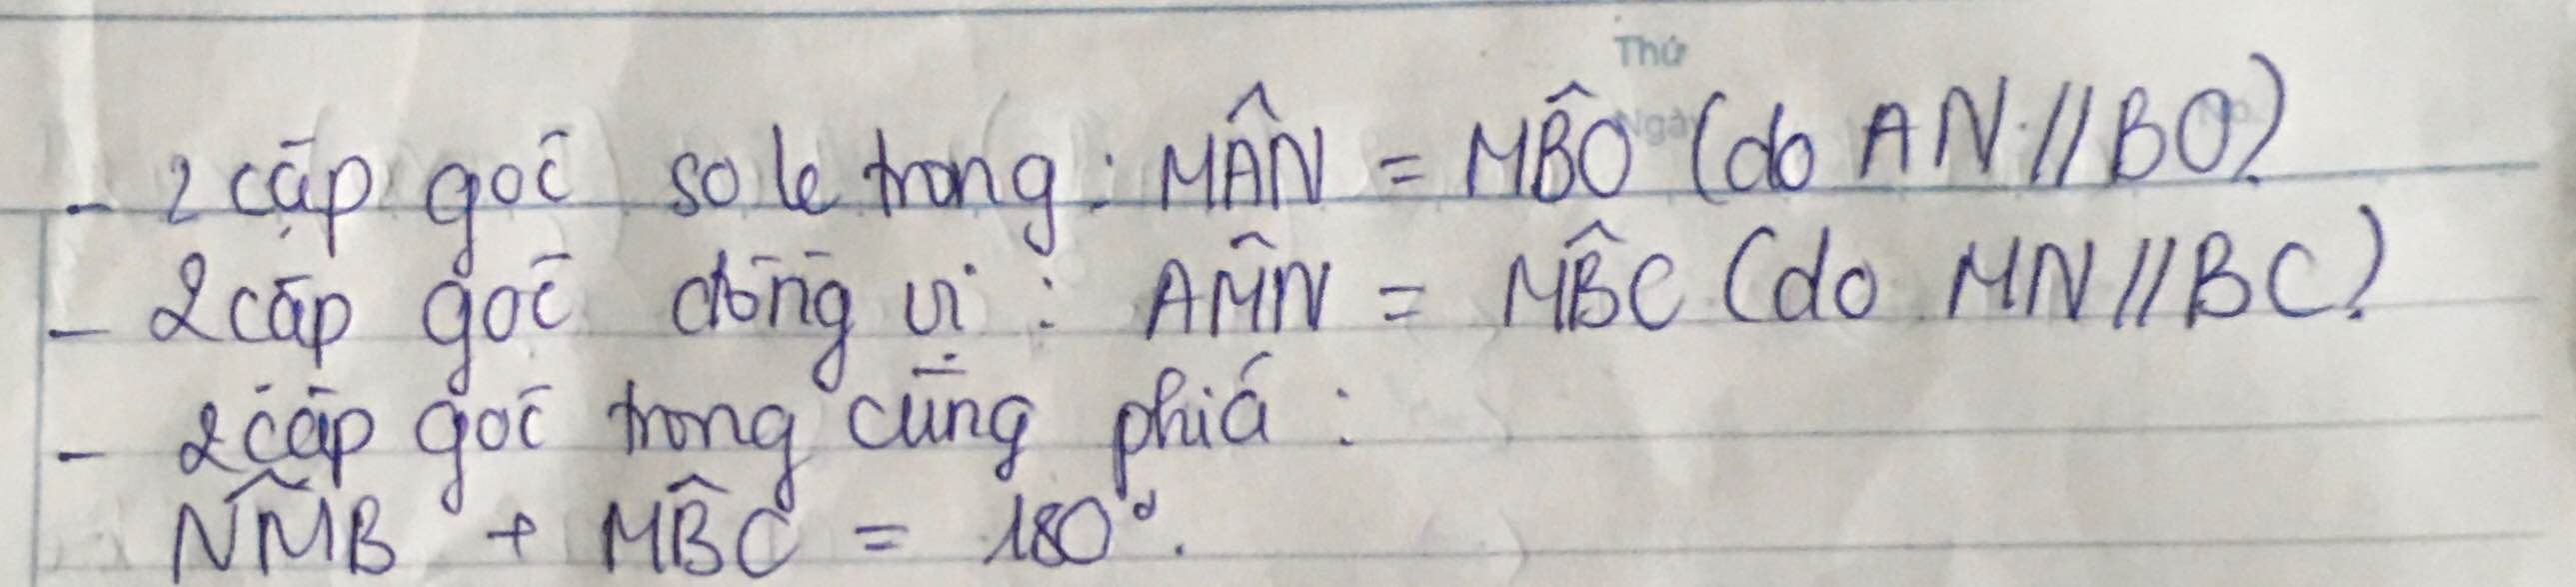 Thứ
Ngày No.
- 2 cặp góc so le trong : MÂN = MB̂O (do AN // BO)
- 2 cặp góc đồng vị : AM̂N = MB̂C (do MN // BC)
- 2 cặp góc trong cùng phía :
NM̂B + MB̂C = 180°.